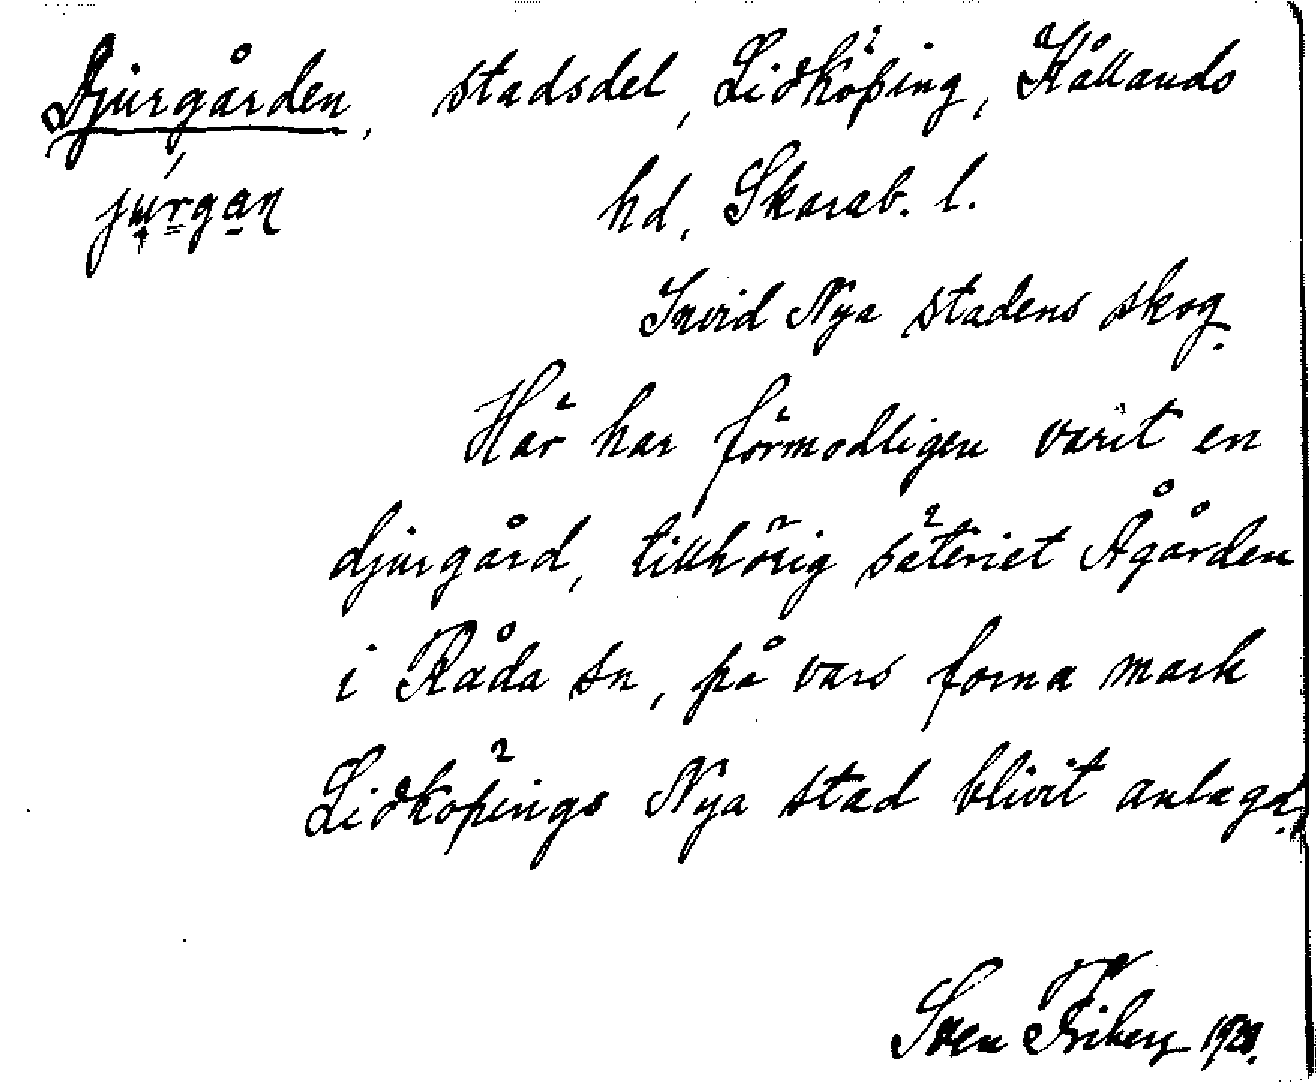 Djurgården, stadsdel, Lidköping, Kållands
jurgan hd, Skarab. l.
Invid Nya stadens skog.
Här har förmodligen varit en
djurgård, tillhörig säteriet Ågården
i Råda sn, på vars forna mark
Lidköpings Nya stad blivit anlagd.
Sven Friberg